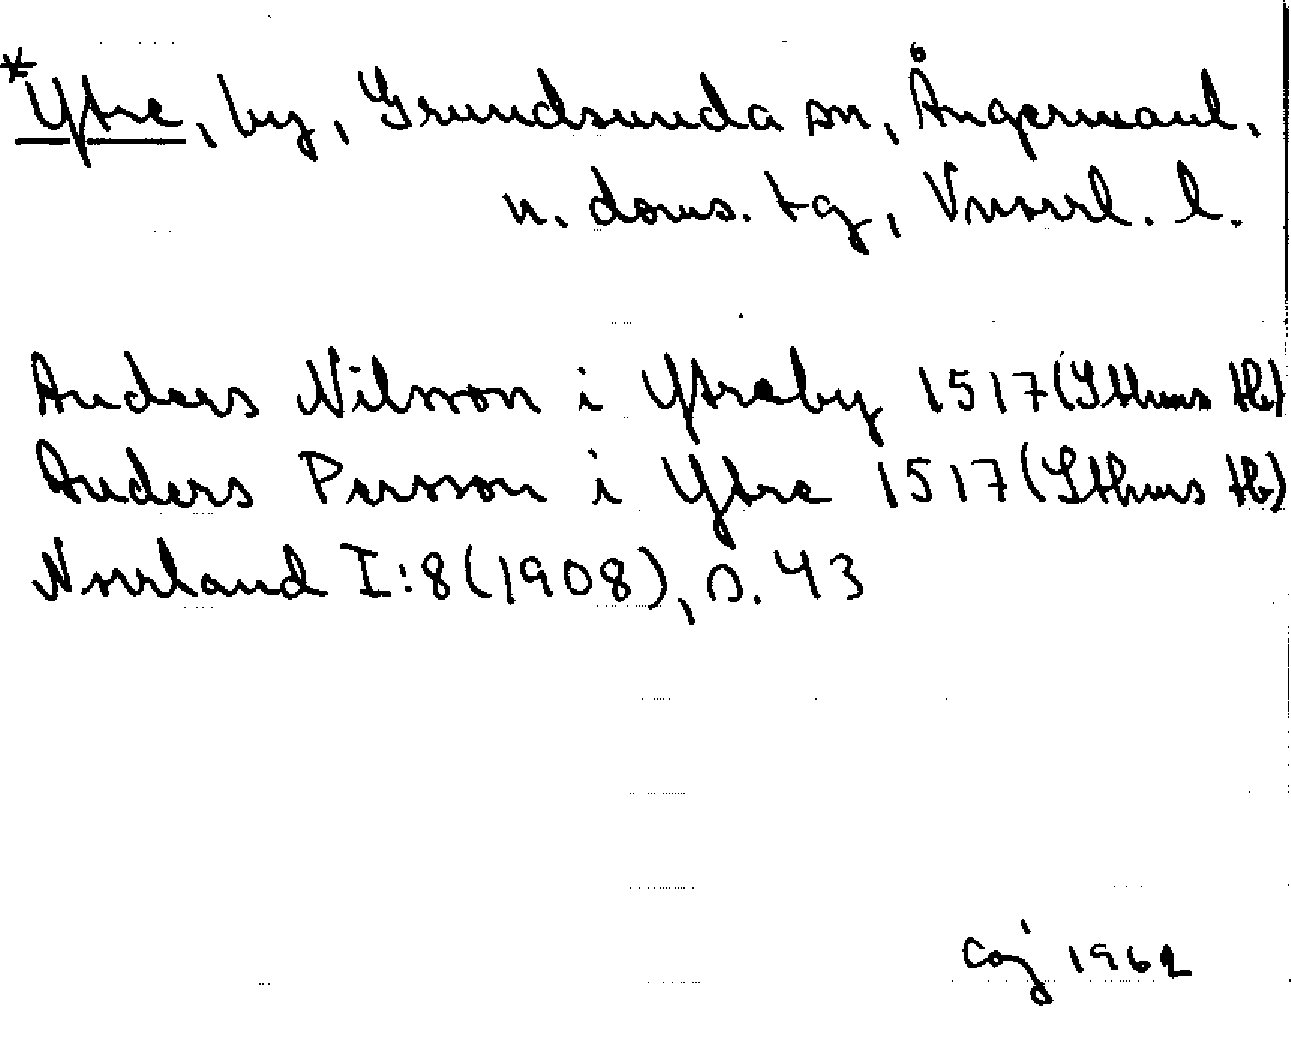 *Ytre, by, Grundsunda sn, Ångermanl.
n. doms. tg, Vnorrl. l.
Anders Nilsson i Ytreby 1517 (Sthms Hb)
Anders Persson i Ytre 1517 (Sthms Hb)
Norrland I:8 (1908), s. 43
Coj 1962